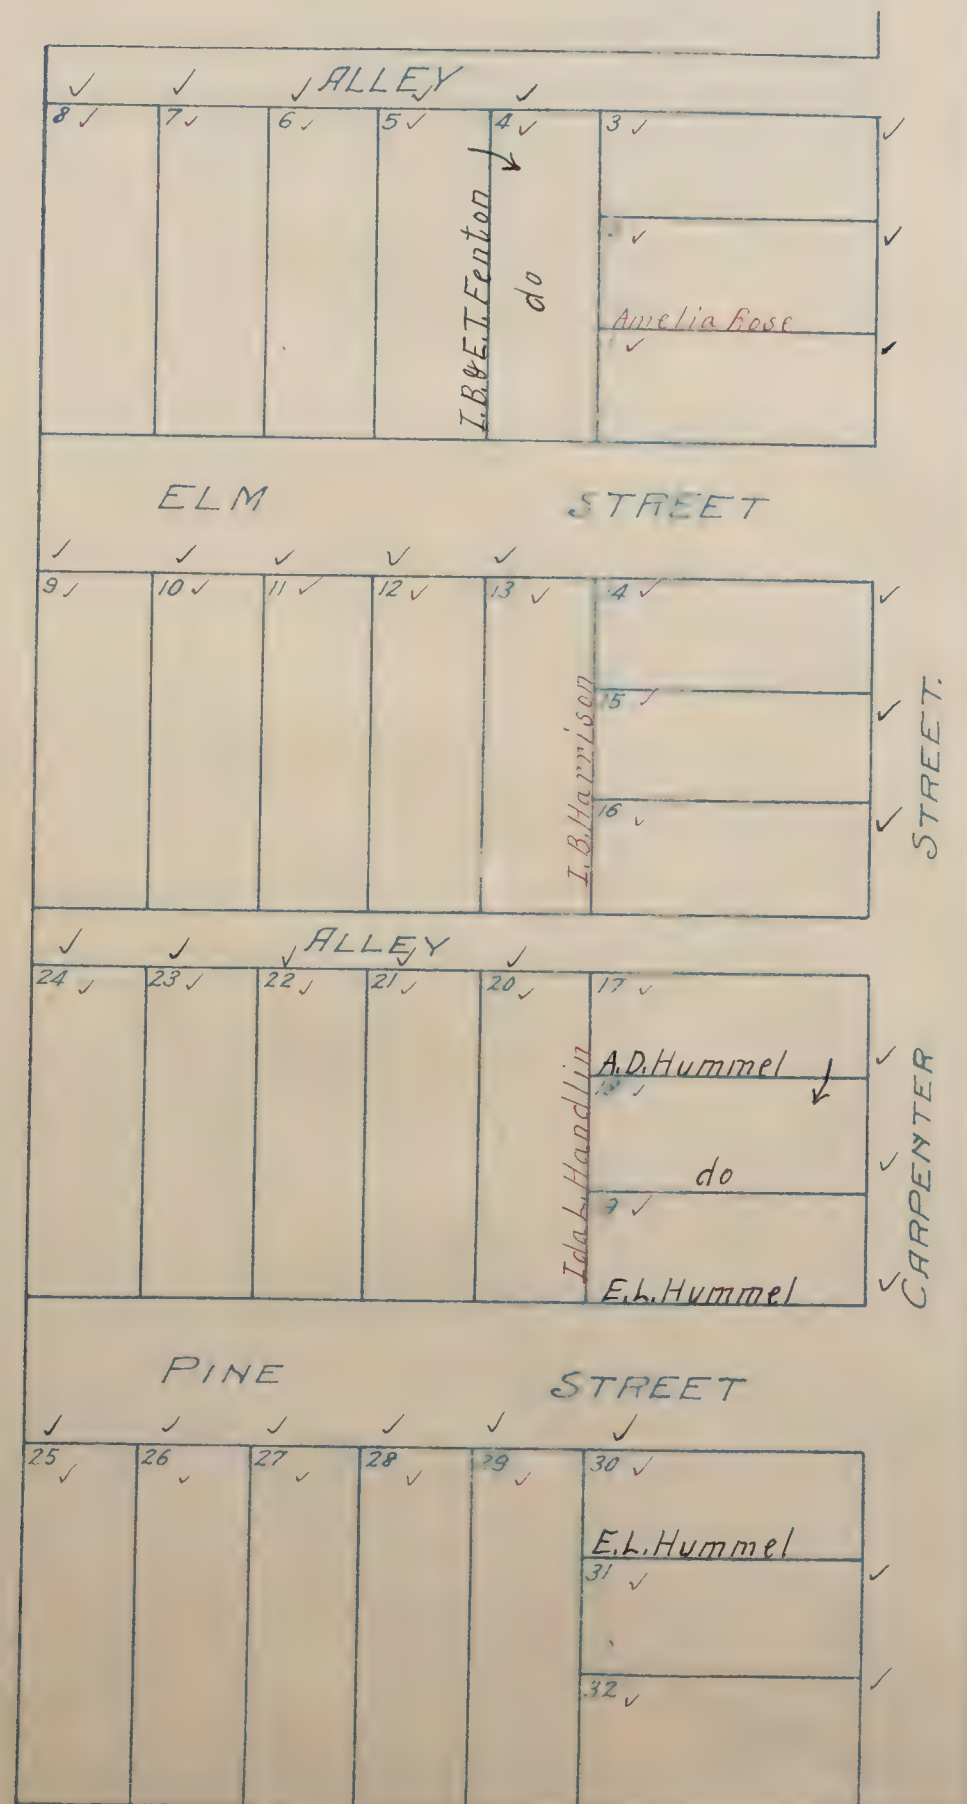 ALLEY
8 7 6 5 4 3
I.B.&E.T. Fenton
do
Amelia Rose
ELM STREET
9 10 11 12 13 14
15
16
I.B. Harrison
STREET.
ALLEY
24 23 22 21 20 17
A.D. Hummel
18
do
Ida L. Handlin
E.L. Hummel
CARPENTER
PINE STREET
25 26 27 28 29 30
E.L. Hummel
31
32